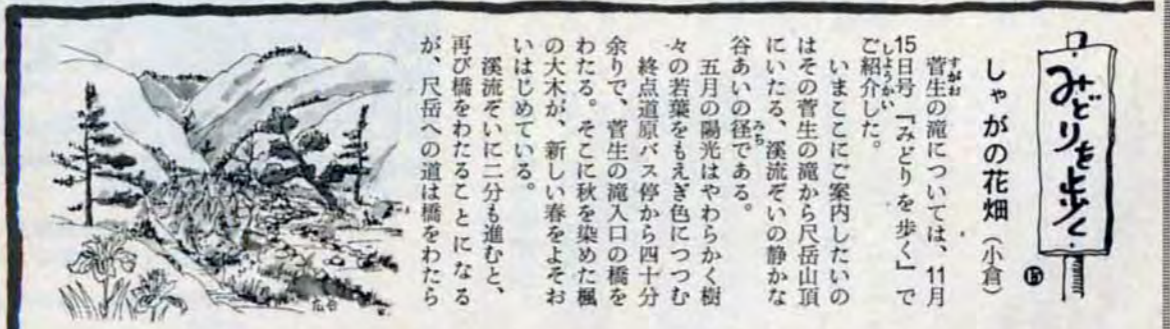 みどりを歩く
⑮
しゃがの花畑（小倉）
菅生の滝については、11月
すがお
15日号『みどりを歩く』で
ご紹介した。
しょうかい
いまここにご案内したいの
はその菅生の滝から尺岳山頂
にいたる、渓流ぞいの静かな
谷あいの径である。
みち
五月の陽光はやわらかく樹
々の若葉をもえぎ色につつむ
終点道原バス停から四十分
余りで、菅生の滝入口の橋を
わたる。そこに秋を染めた楓
の大木が、新しい春をよそお
いはじめている。
渓流ぞいに二分も進むと、
再び橋をわたることになる
が、尺岳への道は橋をわたら